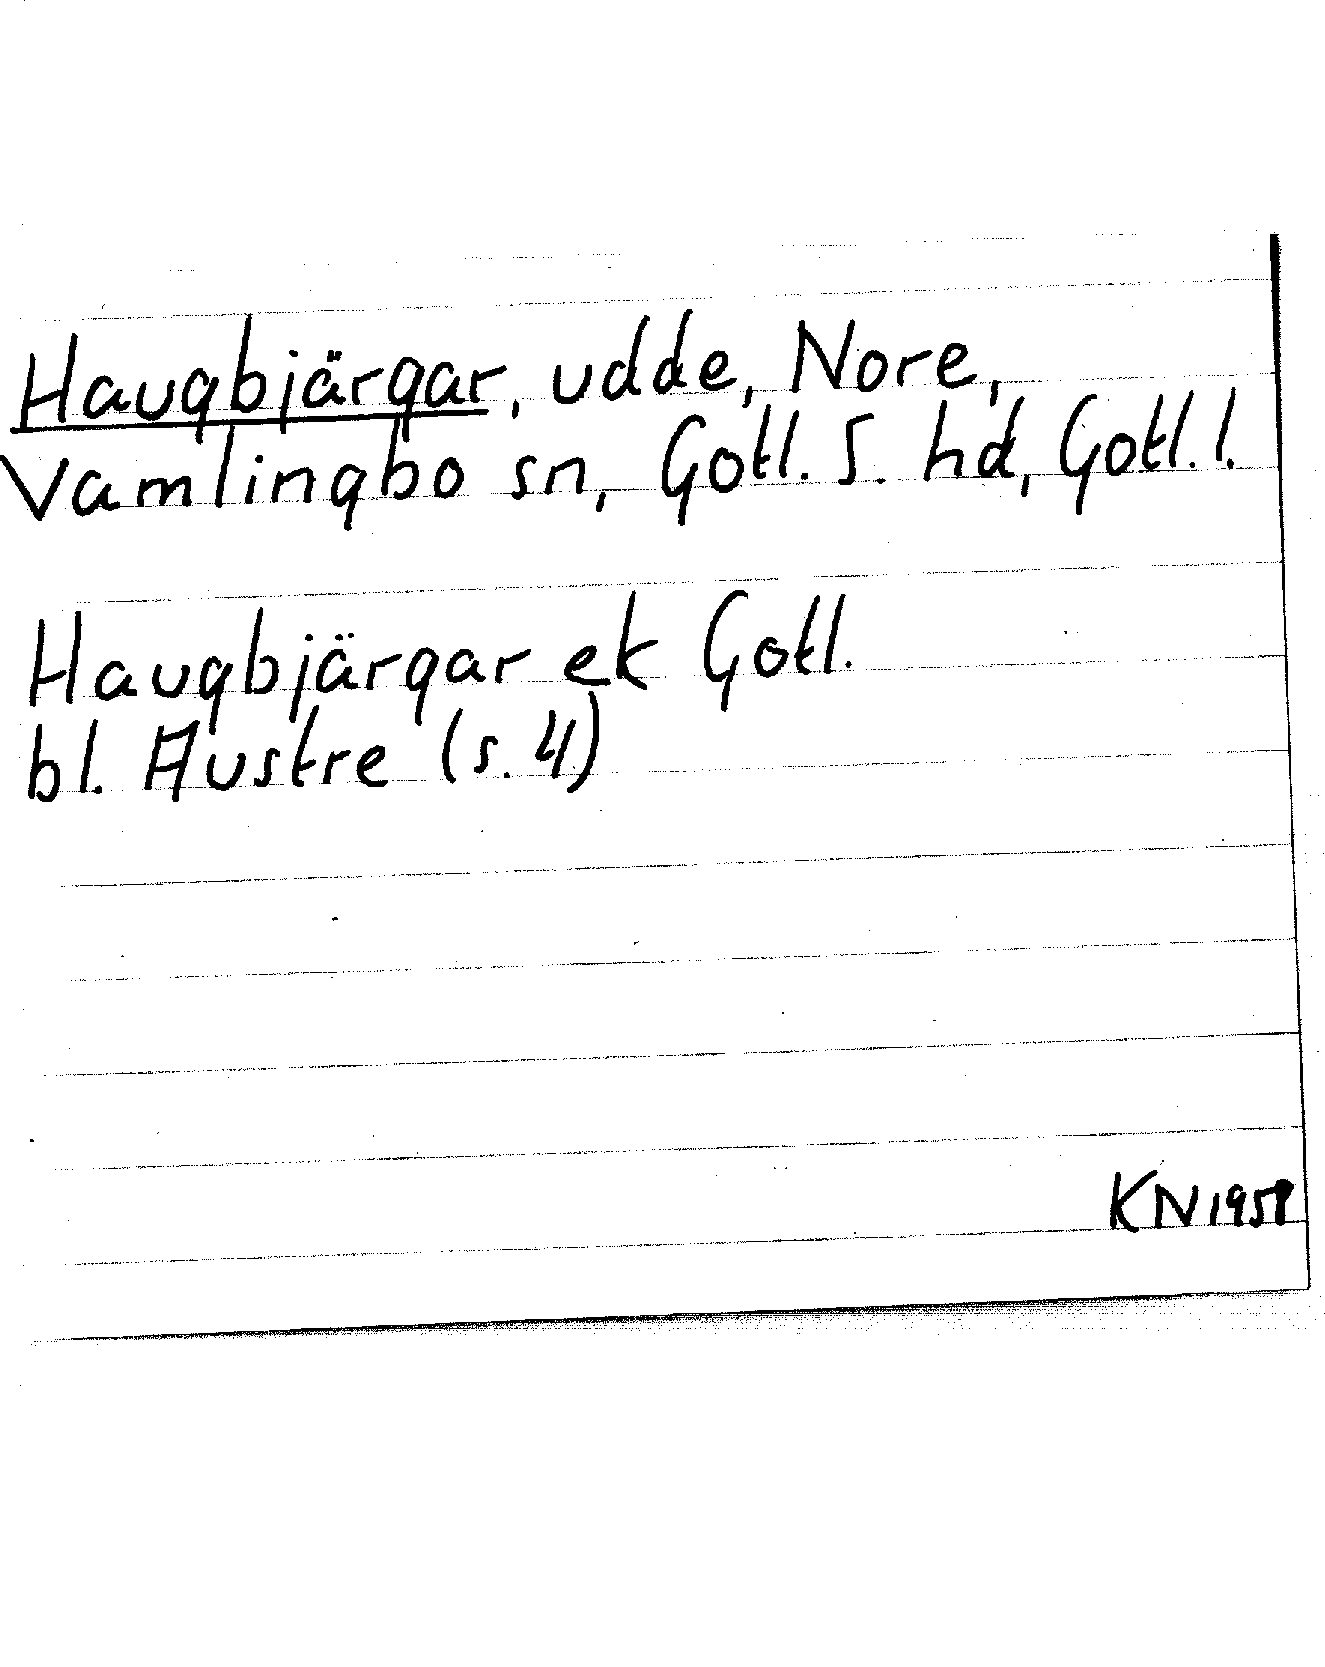 Haugbjärgar, udde, Nore,
Vamlingbo sn, Gotl. S. hd, Gotl. l.
Haugbjärgar ek Gotl.
bl. Austre (s. 4)
KN